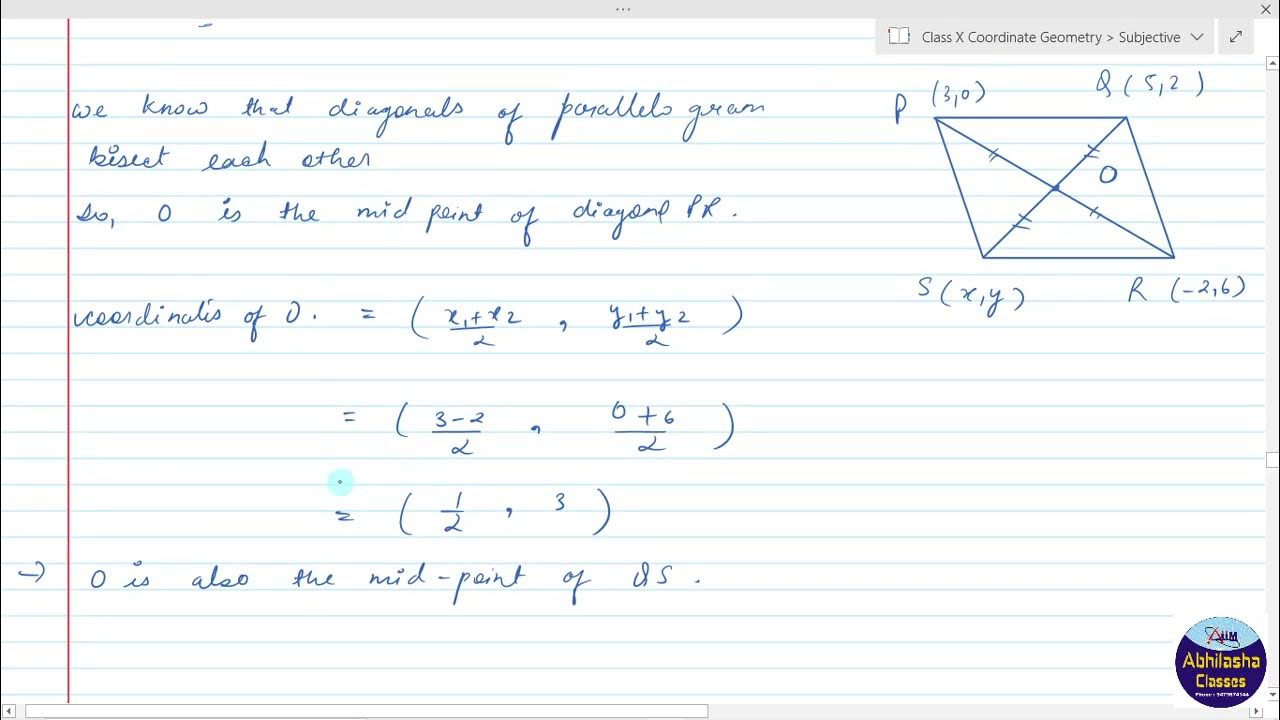 Class X Coordinate Geometry > Subjective
we know that diagonals of parallelogram
bisect each other
So, O is the mid point of diagonal PR.
P (3,0) Q (5,2)
O
S (x,y) R (-2,6)
coordinates of O. = ( x₁+x₂/2 , y₁+y₂/2 )
= ( 3-2/2 , 0+6/2 )
= ( 1/2 , 3 )
→ O is also the mid-point of QS.
AIM
Abhilasha
Classes